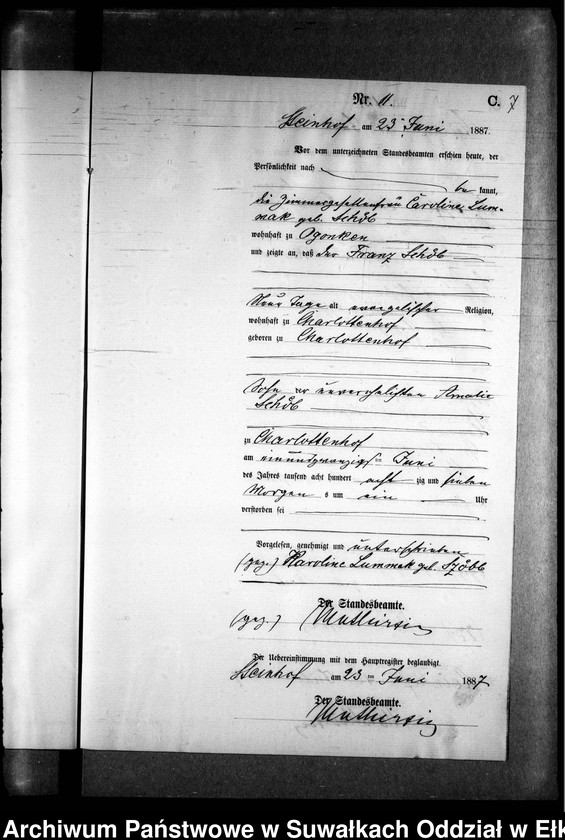 Nr. 11.
C. 7
Steinhof am 23 Juni 1887.
Vor dem unterzeichneten Standesbeamten erschien heute, der
Persönlichkeit nach
be kannt,
die Zimmergesellenfrau Caroline Lum-
mak geb. Schöb
wohnhaft zu Ogonken
und zeigte an, daß der Franz Schöb
Neun Tage alt evangelischer Religion,
wohnhaft zu Charlottenhof
geboren zu Charlottenhof
Sohn der unverehelichten Amalie
Schöb
zu Charlottenhof
am einundzwanzigsten Juni
des Jahres tausend acht hundert acht zig und sieben
Morgen s um ein Uhr
verstorben sei
Vorgelesen, genehmigt und unterschrieben
(gez.) Karoline Lummak geb. Szöbb
Der Standesbeamte.
(gez.)
Die Uebereinstimmung mit dem Hauptregister beglaubigt.
Steinhof am 23 ten Juni 1887
Der Standesbeamte.
Archiwum Państwowe w Suwałkach Oddział w Ełk